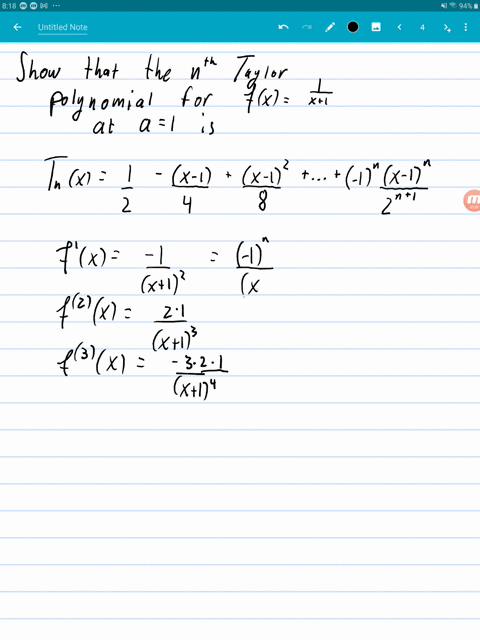 8:18 94%
Untitled Note 4
Show that the nth Taylor
polynomial for f(x) = 1/(x+1)
at a=1 is
Tn(x) = 1/2 - (x-1)/4 + (x-1)^2/8 + ... + (-1)^n (x-1)^n/2^(n+1)
f'(x) = -1/(x+1)^2 = (-1)^n/(x
f^(2)(x) = 2·1/(x+1)^3
f^(3)(x) = -3·2·1/(x+1)^4